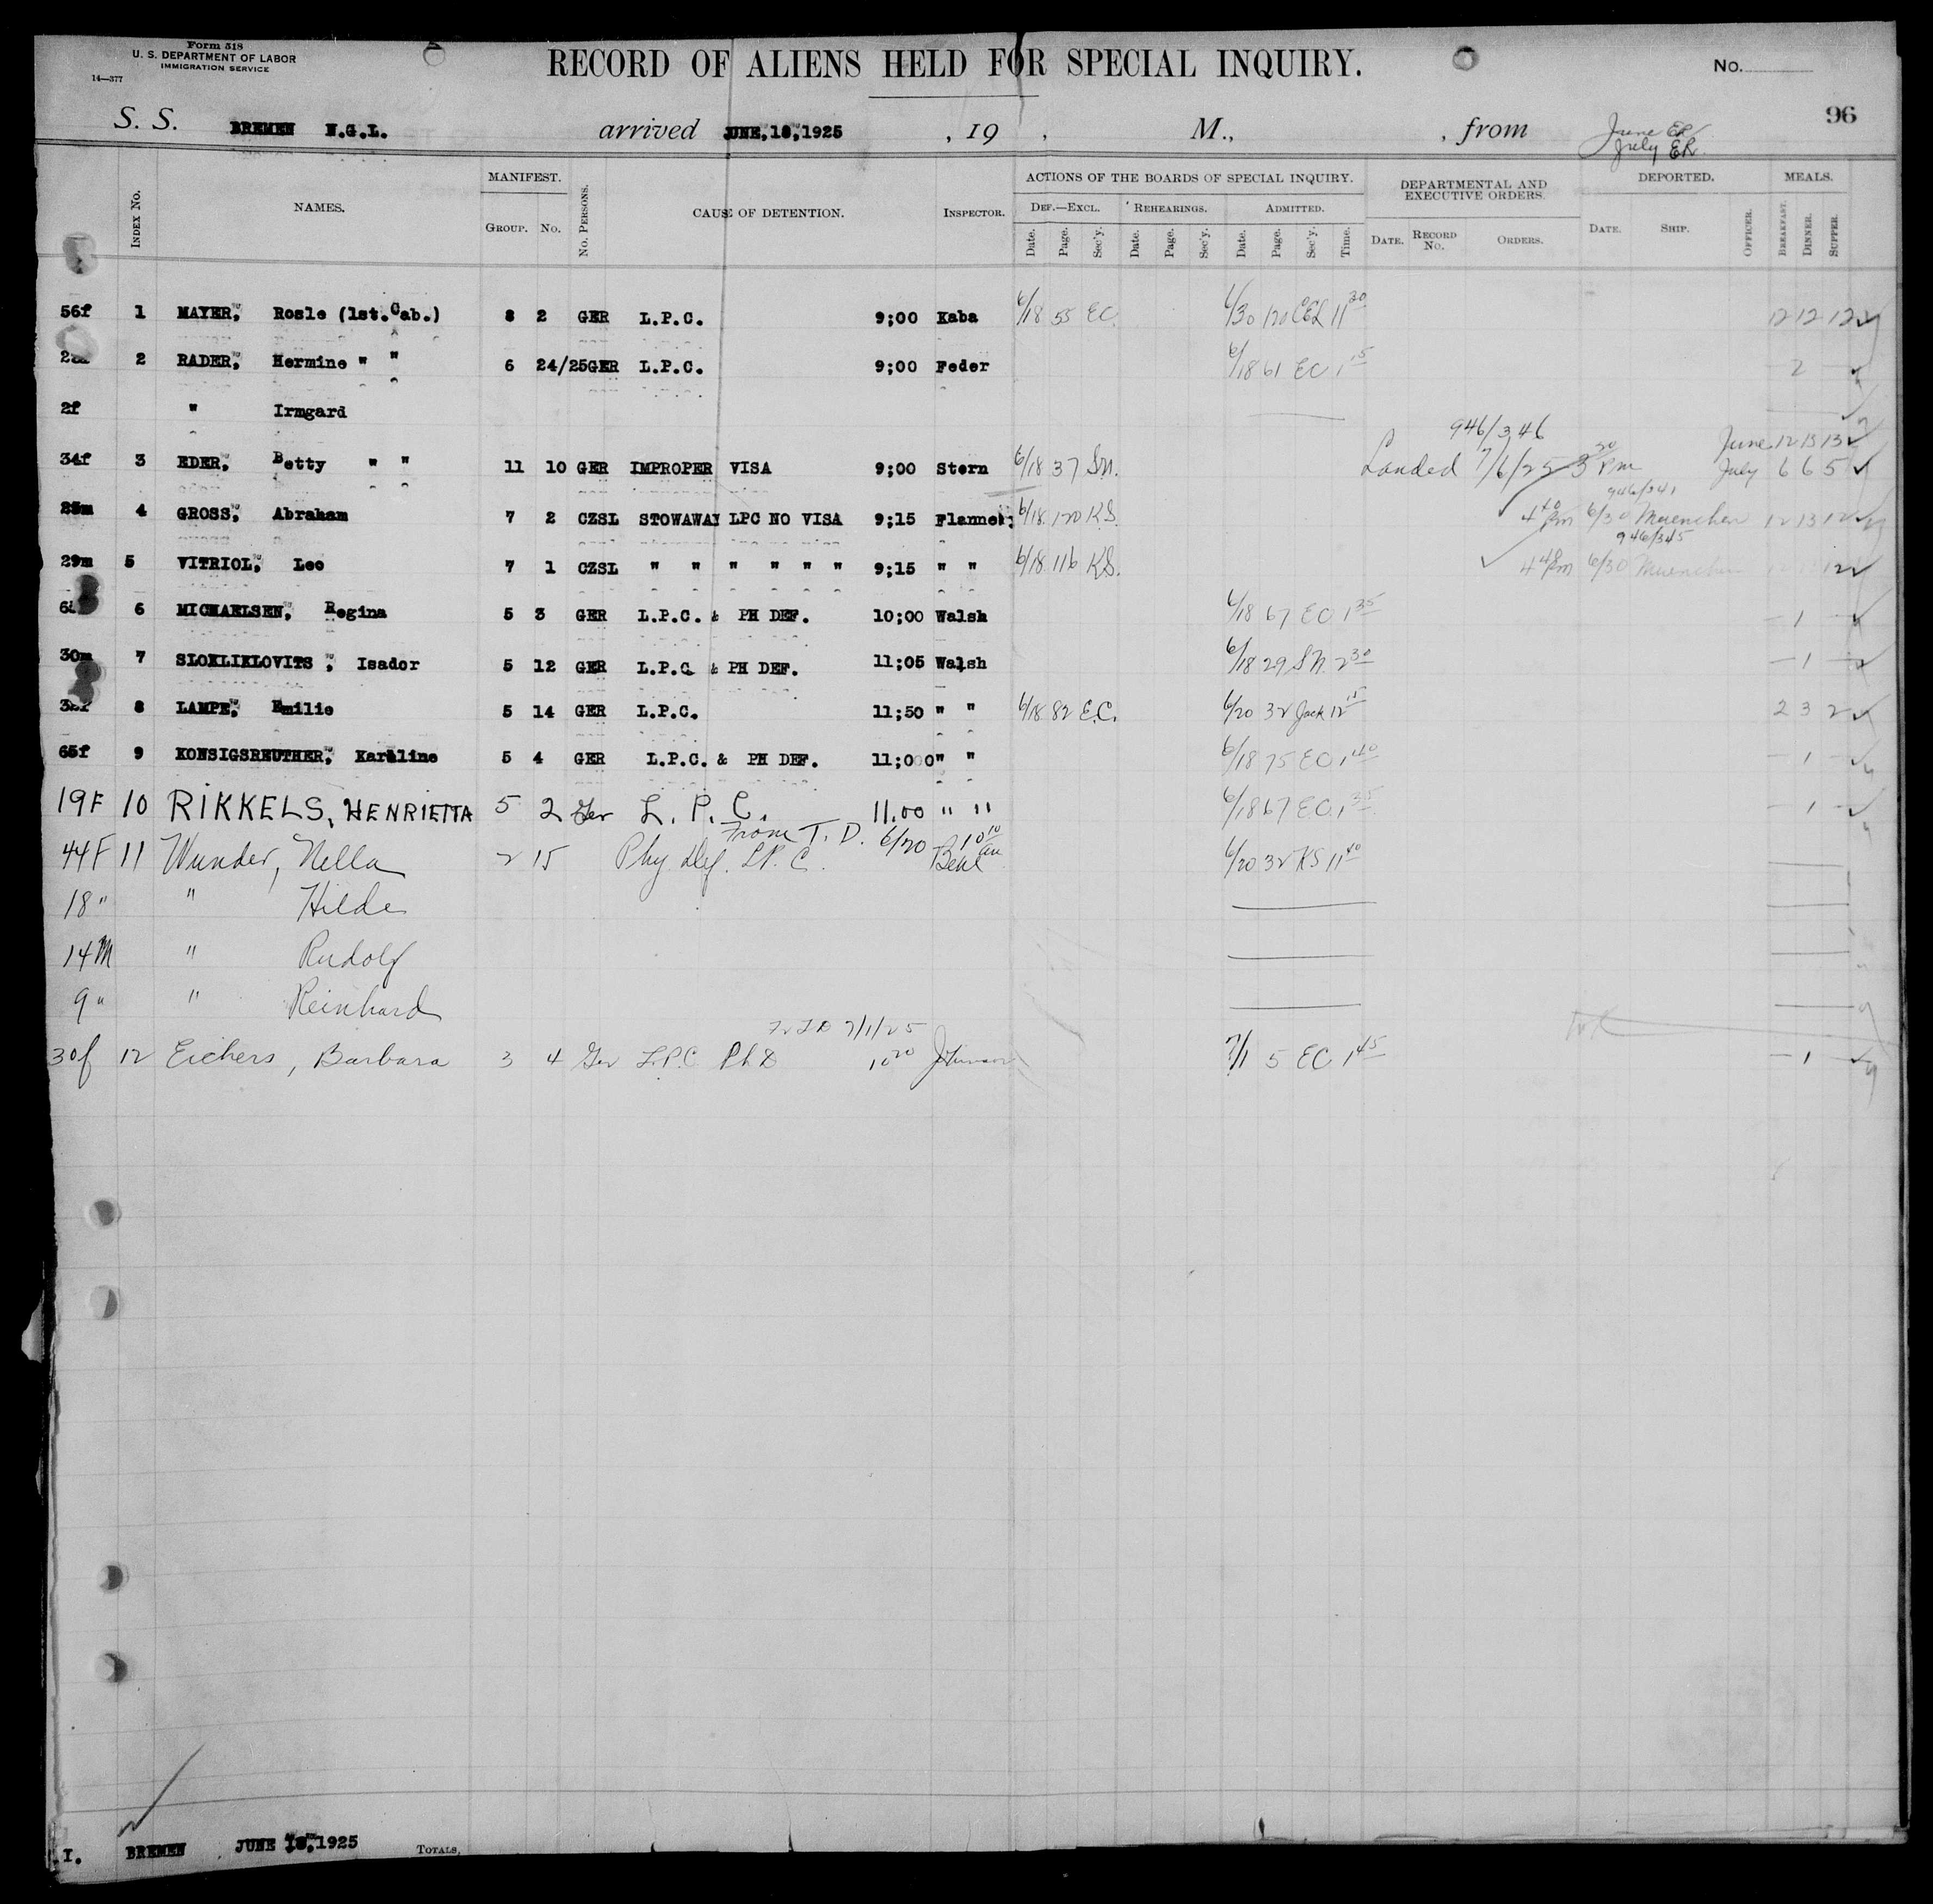 Form 518
U. S. DEPARTMENT OF LABOR
IMMIGRATION SERVICE
14—377
RECORD OF ALIENS HELD FOR SPECIAL INQUIRY.
No.
96
S. S. BREMEN N.G.L. arrived JUNE,18,1925 , 19 , M., , from June ER
July ER
INDEX No. NAMES. MANIFEST. GROUP. No. No. PERSONS. CAUSE OF DETENTION. INSPECTOR. ACTIONS OF THE BOARDS OF SPECIAL INQUIRY. DEF.—EXCL. Date. Page. Sec'y. REHEARINGS. Date. Page. Sec'y. ADMITTED. Date. Page. Sec'y. Time. DEPARTMENTAL AND EXECUTIVE ORDERS. DATE. RECORD No. ORDERS. DEPORTED. DATE. SHIP. OFFICER. MEALS. BREAKFAST. DINNER. SUPPER.
56f 1 MAYER, Rosle (1st.Cab.) 8 2 GER L.P.C. 9;00 Kaba 6/18 55 EC. 6/30 120 CEL 11 30 12 12 12
2 RADER, Hermine " " 6 24/25GER L.P.C. 9;00 Feder 6/18 61 EC 1 15 — 2 —
2f " Irmgard
946/346
34f 3 EDER, Betty " " 11 10 GER IMPROPER VISA 9;00 Stern 6/18 37 S.N. Landed 7/6/25 3 30 Pm June 12 13 13
July 6 6 5
946/341
25m 4 GROSS, Abraham 7 2 CZSL STOWAWAY LPC NO VISA 9;15 Flanne 6/18 120 K.S. 4 40 Pm 6/30 Muenchen 12 13 12
946/345
29m 5 VITRIOL, Leo 7 1 CZSL " " " " " " 9;15 " " 6/18 116 K.S. Pm 6/30 Muenchen 12
6 MICHAELSEN, Regina 5 3 GER L.P.C. & PH DEF. 10;00 Walsh 6/18 67 EC 1 35 — 1 —
30m 7 SLOKLIKLOVITS , Isador 5 12 GER L.P.C & PH DEF. 11;05 Walsh 6/18 29 S.N. 2 30 — 1 —
8 LAMPE, Emilie 5 14 GER L.P.C. 11;50 " " 6/18 82 E.C. 6/20 32 Jack 12 15 2 3 2
65f 9 KONSIGSREUTHER, Karline 5 4 GER L.P.C. & PH DEF. 11;000" " 6/18 75 EC 1 40 — 1 —
19F 10 RIKKELS, HENRIETTA 5 2 Ger L. P. C. 11.00 " " 6/18 67 E.C. 1 35 — 1 —
From T. D. 6/20 10 10 am
44F 11 Wunder, Nella 2 15 Phy Def. L.P.C. 6/20 32 KS 11 40
18 " " Hilde
14M " Rudolf
9 " " Reinhard
7/1/25
30f 12 Eichers, Barbara 3 4 Ger L.P.C. Ph D 10 20 7/1 5 EC 1 45 — 1 —
I. BREMEN JUNE 18,1925 TOTALS,